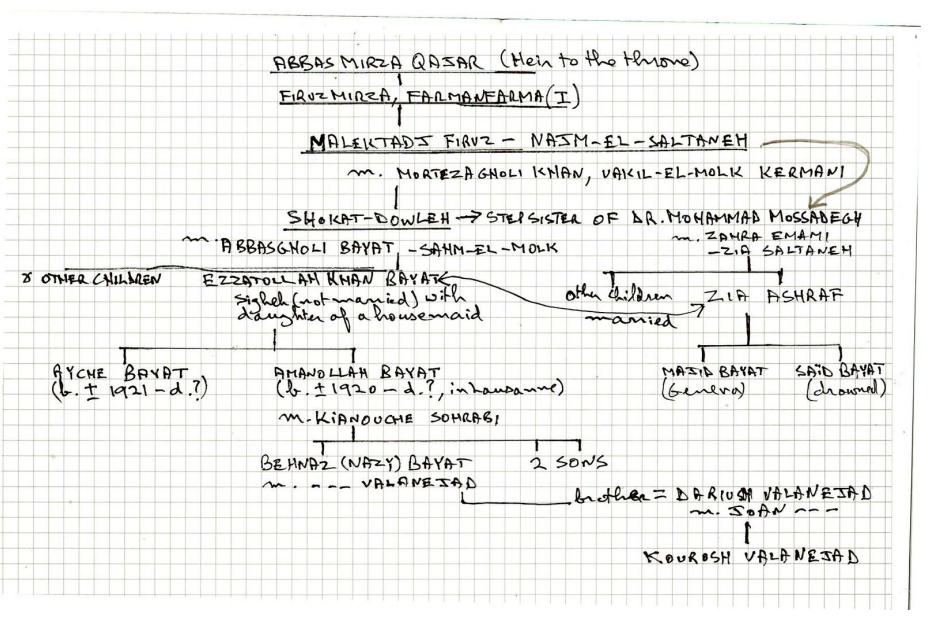 ABBAS MIRZA QAJAR (Heir to the throne)
FIRUZ MIRZA, FARMANFARMA (I)
MALEKTADJ FIRUZ - NAJM-EL-SALTANEH
m. MORTEZA GHOLI KHAN, VAKIL-EL-MOLK KERMANI
SHOKAT-DOWLEH → STEPSISTER OF DR. MOHAMMAD MOSSADEGH
m. ABBASGHOLI BAYAT - SAHM-EL-MOLK
m. ZAHRA EMAMI
- ZIA SALTANEH
8 OTHER CHILDREN
EZZATOLLAH KHAN BAYAT
sigheh (not married) with
daughter of a housemaid
other children
married
ZIA ASHRAF
AYCHE BAYAT
(b. ± 1921 - d. ?)
AMANOLLAH BAYAT
(b. ± 1920 - d. ?, in Lausanne)
m. KIANOUCHE SOHRABI
MAJID BAYAT
(Geneva)
SAÏD BAYAT
(drowned)
BEHNAZ (NAZY) BAYAT
m. --- VALANEJAD
2 SONS
brother = DARIUSH VALANEJAD
m. JOAN ---
KOUROSH VALANEJAD